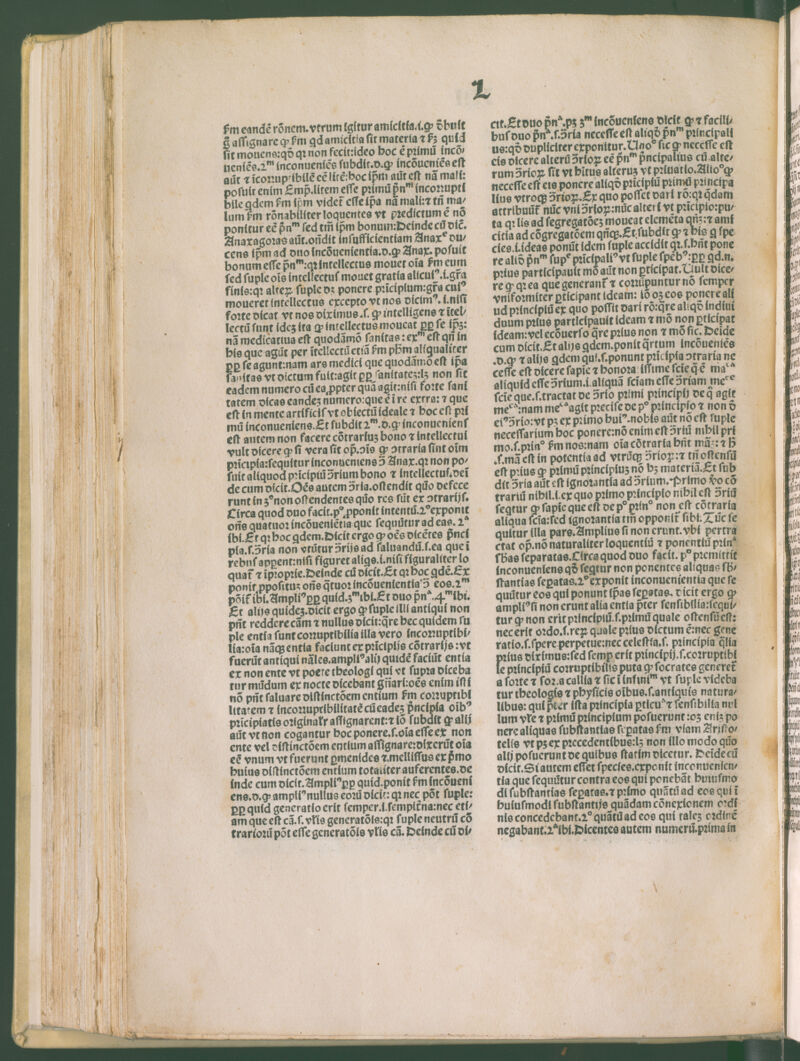 L
ẜm eandē rōnem. vtrum igitur amicitia. i. ꝙ debuit
aſſignare ꝙ ẜm qd amicitia ſit materia ⁊ ẜm quid
ſit mouens: qđ qꝛ non fecit: ideo hoc ē primū incō/
ueniēs. 2ᵐ inconueniēs ſubdit. d. ꝙ incōueniēs eſt
aūt ⁊ icorrupibilē eē litē: hoc ipm aūt eſt nā mali:
poſuit enim Emp. litem eſſe primū pnᵐ incorrupti
bile qdem ẜm ipm videt eſſe ipa nā mali: ⁊ tn̄ ma/
lum ẜm rōnabiliter loquentes vt predictum ē nō
ponitur eē pnᵐ ſed tm̄ ipm bonum: Deinde cū dic̄.
Anaxagoras aūt. on̄dit inſufficientiam Anax. du/
cens ipm ad duo incōuenientia. d. ꝙ Anax. poſuit
bonum eſſe pnᵐ: qꝛ intellectus mouet oīa ẜm eum
ſed ſuple oīs intellectuſ mouet gratia alicuiꝰ. i. gr̄a
finis: qꝛ alteꝝ ſuple dꝫ ponere pricipium: gr̄a cuiꝰ
moueret intellectus excepto vt nos dicimꝰ. i. niſi
forte dicat vt nos diximus. ſ. ꝙ intelligens ⁊ itel/
lectū ſunt ideꝫ ita ꝙ intellectus moueat pp ſe ipꝫ:
nā medicatiua eſt quodāmō ſanitas: exᵐ eſt qn̄ in
his que agūt per itellectū etiā ẜm phm aliqualiter
pp ſe agunt: nam ars medici que quodāmō eſt ipa
ſanitas vt dictum fuit: agit pp ſanitateꝫ: lꝫ non ſit
eadem numero cū ea, ppter quā agit: niſi forte ſani
tatem dicas eandeꝫ numero: que ē i re extra: ⁊ que
eſt in mente artificiſ vt obiectū ideale ⁊ hoc eſt pri
mū inconueniens. Et ſubdit 2ᵐ. d. ꝙ inconuenienſ
eſt autem non facere cōtrariuꝫ bono ⁊ intellectui
vult dicere ꝙ ſi vera ſit op. oīs ꝙ ↄtraria ſint oīm
pricipia: ſequitur inconueniens ↄ Anax. qꝛ non po/
ſuit aliquod pricipiū ↄrium bono ⁊ intellectui. dei
de cum dicit. Oēs autem ↄria. oſtendit quō defece
runt in 3ᵒ non oſtendentes quō res ſūt ex ↄtrarijſ.
Circa quod duo facit. pᵒ, pponit intentū. 2ᵒ exponit
ibi. Et qꝛ hoc qdem. Dicit ergo ꝙ oēs dicētes pnci
pia. ſ. ↄria non vtūtur ↄrijs ad ſaluandū. ſ. ea que i
rebuſ appent: niſi figuret aliqs. i. niſi figuraliter lo
quaꝶ ⁊ iproprie. Deinde cū dicit. Et qꝛ hoc qdē. Ex
Et alijs quideꝫ. dicit ergo ꝙ ſuple illi antiqui non
pn̄t reddere cām ⁊ nullus dicit: qre hec quidem ſu
ple entia ſunt corruptibilia illa vero incorruptibi/
lia: oīa nāꝗ entia faciunt ex pricipijs cōtrarijs: vt
fuerūt antiqui nāles. ampliꝰ alij quidē faciūt entia
ex non ente vt poete theologi qui vt ſupra diceba
tur mūdum ex nocte dicebant gn̄ari: oēs enim iſti
nō pn̄t ſaluare diſtinctōem entium ẜm corruptibi
litatem ⁊ incorruptibilitatē cū eadeꝫ pncipia oibꝰ
pricipiatis originaꝶr aſſignarent: ⁊ iō ſubdit ꝙ alij
aūt vt non cogantur hoc ponere. ſ. oīa eſſe ex non
ente vel diſtinctōem entium aſſignare: dixerūt oīa
eē vnum vt fuerunt pmenides ⁊ melliſſus ex pmo
huius diſtinctōem entium totaliter auferentes. de
inde cum dicit. Ampliꝰ pp quid. ponit ẜm incōueni
ens. d. ꝙ ampliꝰ nullus eorū dicit: qꝛ nec pōt ſuple:
pp quid generatio erit ſemper. i. ſempitna: nec eti/
am que eſt cā. ſ. vlīs generatōis: qꝛ ſuple neutrū cō
trariorū pōt eſſe generatōis vlīs cā. Deinde cū di/
cit. Et duo pn̄ᵃ. pꝫ 3ᵐ incōueniens dicit ꝙ ⁊ facili/
buſ duo pn̄ᵃ. ſ. ↄria neceſſe eſt aliqđ pnᵐ principali
us: qđ dupliciter exponitur. Uno° ſic ꝙ neceſſe eſt
eis dicere alterū ↄrioꝝ eē pnᵐ pncipalius cū alte/
rum ↄrioꝝ ſit vt hītus alteruꝫ vt priuatio. Alio° ꝙ
neceſſe eſt eis ponere aliqđ pricipiū primū principa
lius vtroqꝫ ↄrioꝝ. Ex quo poſſet dari rō: qꝛ qdam
attribuūt nūc vni ↄrioꝝ: nūc alteri vt pricipio: pu/
ta qꝛ lis ad ſegregatōeꝫ moueat elemēta qn̄qꝫ: ⁊ ami
citia ad cōgregatōem qn̄qꝫ. Et ſubdit ꝙ ⁊ his ꝗ ſpe
cies. i. ideas ponūt idem ſuple accidit qꝛ. ſ. hn̄t pone
re aliō pnᵐ ſupᵉ pricipaliꝰ vt ſuple ſpēbꝰ: pp qd. n.
prius participauit mō aūt non pticipat. Uult dice/
re ꝙ qꝛ ea que generant ⁊ corrūpuntur nō ſemper
vniformiter pticipant ideam: iō oꝫ eos ponere ali
ud principiū ex quo poſſit dari rō: qre aliqđ indiui
duum prius participauit ideam ⁊ mō non pticipat
ideam: vel ecōuerſo qre prius non ⁊ mō ſic. Deide
cum dicit. Et alijs qdem. ponit qrtum incōueniēs
.d. ꝙ ⁊ alijs qdem qui. ſ. ponunt pricipia ↄtraria ne
ceſſe eſt dicere ſapie ⁊ honoratiſſime ſcie ꝙ ē maᶜᵃ
aliquid eſſe ↄrium. i. aliquā ſciam eſſe ↄriam meᶜᵉ
ſcie que. ſ. tractat de ↄrio primi principij de ꝗ agit
meᶜᵃ: nam meᶜᵃ agit preciſe de pᵒ principio ⁊ non ē
eiꝰ ↄrio: vt pꝫ ex primo huiꝰ. nobis aūt nō eſt ſuple
neceſſarium hoc ponere: nō enim eſt ↄriū nihil pri
mo. ſ. prinᵒ ẜm nos: nam oīa cōtraria hn̄t māꝫ: ⁊ h̄
.ſ. mā eſt in potentia ad vtrūqꝫ ↄrioꝝ: ⁊ tn̄ oſtenſū
eſt prius ꝙ primū principiuꝫ nō hꝫ materiā. Et ſub
dit ↄria aūt eſt ignorantia ad ↄrium. Primo ꝟo cō
trariū nihil. i. ex quo primo principio nihil eſt ↄriū
ſeqtur ꝙ ſapie que eſt de pᵒ prinᵒ non eſt cōtraria
aliqua ſcia: ſed ignorantia tm̄ opponiꝶ ſibi. Tūc ſe
quitur illa pars. Amplius ſi non erunt. vbi pertra
ctat op. nō naturaliter loquentiū ⁊ ponentiū prinᵃ
ſb̄as ſeparatas. Circa quod duo facit. pᵒ premittit
inconueniens qđ ſeqtur non ponentes aliquas ſb̄/
ſtantias ſepatas. 2ᵒ exponit inconuenientia que ſe
quūtur eos qui ponunt ipſas ſepatas. dicit ergo ꝙ
ampliꝰ ſi non erunt alia entia pter ſenſibilia: ſequi/
tur ꝙ non erit principiū. ſ. primū quale oſtenſū eſt:
nec erit ordo. ſ. reꝝ quale prius dictum ē: nec gene
ratio. ſ. ſpere perpetue: nec celeſtia. ſ. principia qlia
prius diximus: ſed ſemp erit principij. ſ. corruptibi
le principiū corruptibilis puta ꝙ ſocrates genereꝶ
a forte ⁊ for. a callia ⁊ ſic i infiniᵐ vt ſuple videba
tur theologis ⁊ phyſicis oībus. ſ. antiquis natura/
libus: qui pter iſta principia pticuᵃ ⁊ ſenſibilia nul
lum vle ⁊ primū principium poſuerunt: oꝫ eniꝫ po
nere aliquas ſubſtantias ſepatas ẜm viam Ariſto/
telis vt pꝫ ex precedentibus: lꝫ non illo modo quō
alij poſuerunt de quibus ſtatim dicetur. Deide cū
dicit. Si autem eſſet ſpecies. exponit inconuenien/
tia que ſequūtur contra eos qui ponebāt huiuſmo
di ſubſtantias ſepatas. ⁊ primo quātū ad eos qui i
huiuſmodi ſubſtantijs quādam cōnexionem ordi
nis concedebant. 2ᵒ quātū ad eos qui taleꝫ ordinē
negabant. 2ᵃ ibi. Dicentes autem numerū. prima in